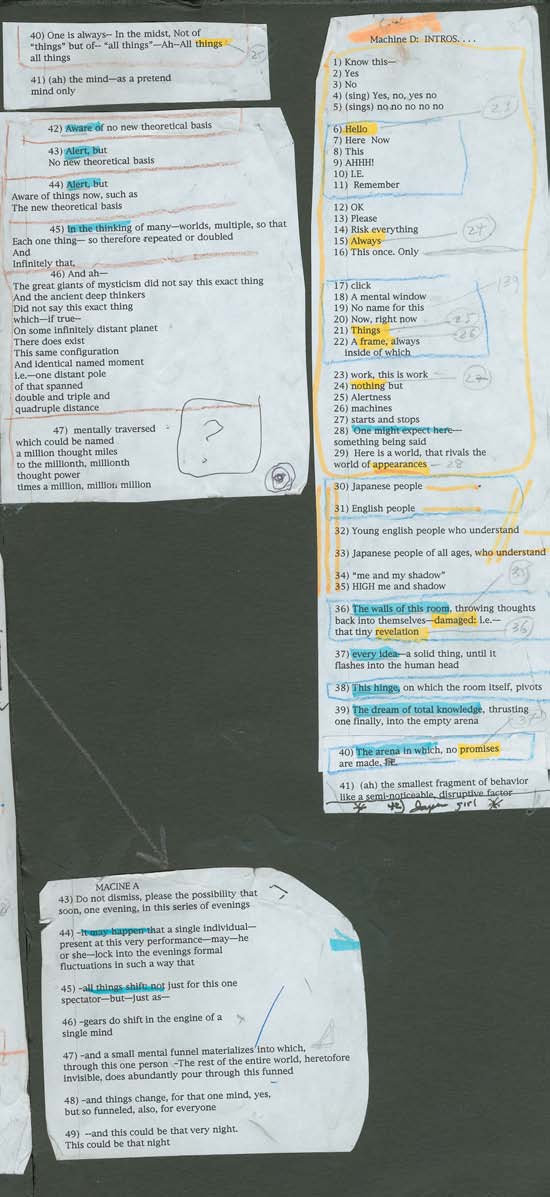 40) One is always– In the midst, Not of
"things" but of– "all things"—Ah—All things
all things
25
41) (ah) the mind—as a pretend
mind only
42) Aware of no new theoretical basis
43) Alert, but
No new theoretical basis
44) Alert, but
Aware of things now, such as
The new theoretical basis
45) In the thinking of many—worlds, multiple, so that
Each one thing— so therefore repeated or doubled
And
Infinitely that,
46) And ah—
The great giants of mysticism did not say this exact thing
And the ancient deep thinkers
Did not say this exact thing
which—if true—
On some infinitely distant planet
There does exist
This same configuration
And identical named moment
i.e.—one distant pole
of that spanned
double and triple and
quadruple distance
47) mentally traversed
which could be named
a million thought miles
to the millionth, millionth
thought power
times a million, million, million
?
Machine D: INTROS. . . .
1) Know this—
2) Yes
3) No
4) (sing) Yes, no, yes no
5) (sings) no no no no no
23
6) Hello
7) Here Now
8) This
9) AHHH!
10) I.E.
11) Remember
12) OK
13) Please
14) Risk everything
24
15) Always
16) This once. Only
17) click
139
18) A mental window
19) No name for this
20) Now, right now
25
21) Things
26
22) A frame, always
inside of which
23) work, this is work
27
24) nothing but
25) Alertness
26) machines
27) starts and stops
28) One might expect here—
something being said
29) Here is a world, that rivals the
world of appearances
28
30) Japanese people
31) English people
32) Young english people who understand
33) Japanese people of all ages, who understand
34) "me and my shadow"
35) HIGH me and shadow
35
36) The walls of this room, throwing thoughts
back into themselves—damaged: i.e.—
that tiny revelation
36
37) every idea—a solid thing, until it
flashes into the human head
38) This hinge, on which the room itself, pivots
39) The dream of total knowledge, thrusting
one finally, into the empty arena
40) The arena in which, no promises
are made,
41) (ah) the smallest fragment of behavior
like a semi-noticeable, disruptive factor
42) girl
MACINE A
43) Do not dismiss, please the possibility that
soon, one evening, in this series of evenings
44) -It may happen that a single individual—
present at this very performance—may—he
or she—lock into the evenings formal
fluctuations in such a way that
45) -all things shift not just for this one
spectator—but—just as—
46) -gears do shift in the engine of a
single mind
47) -and a small mental funnel materializes into which,
through this one person -The rest of the entire world, heretofore
invisible, does abundantly pour through this funned
48) -and things change, for that one mind, yes,
but so funneled, also, for everyone
49) --and this could be that very night.
This could be that night